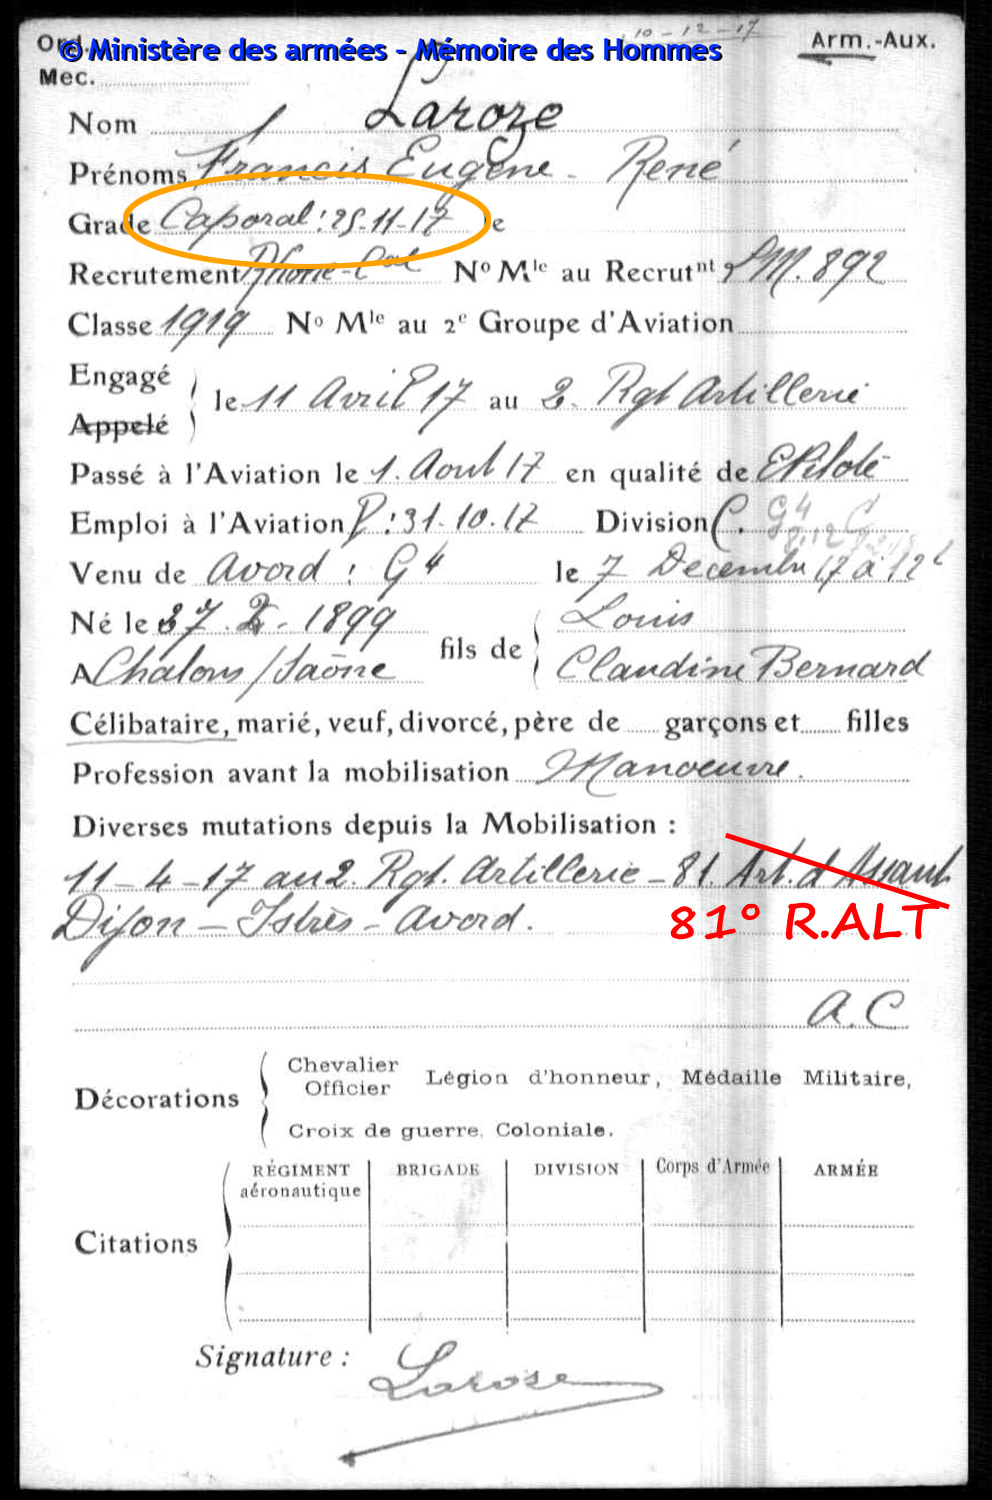 Ord.
© Ministère des armées - Mémoire des Hommes
10-12-17
Arm.-Aux.
Mec.
Nom Laroze
Prénoms Francis Eugène - René
Grade Caporal : 25-11-17 le
Recrutement Rhône-Cal No Mle au Recrutnt 2 P.M. 892
Classe 1919 No Mle au 2e Groupe d'Aviation
Engagé
Appelé
le 11 Avril 17 au 2. Rgt Artillerie
Passé à l'Aviation le 1. Aout 17 en qualité de E Pilote
Emploi à l'Aviation P : 31.10.17 Division C. G4
Venu de Avord : G4 le 7 Décembre 17 à 12h
Né le 27. 2. 1899
fils de Louis
A Chalons/Saône
Claudine Bernard
Célibataire, marié, veuf, divorcé, père de garçons et filles
Profession avant la mobilisation Manoeuvre.
Diverses mutations depuis la Mobilisation :
11-4-17 au 2. Rgt. Artillerie - 81. Art. d'Assaut
Dijon - Istrès - Avord.
81° R.ALT
A.C
Décorations
Chevalier
Officier
Légion d'honneur, Médaille Militaire,
Croix de guerre, Coloniale.
Citations
RÉGIMENT
aéronautique
BRIGADE
DIVISION
Corps d'Armée
ARMÉE
Signature :
Laroze